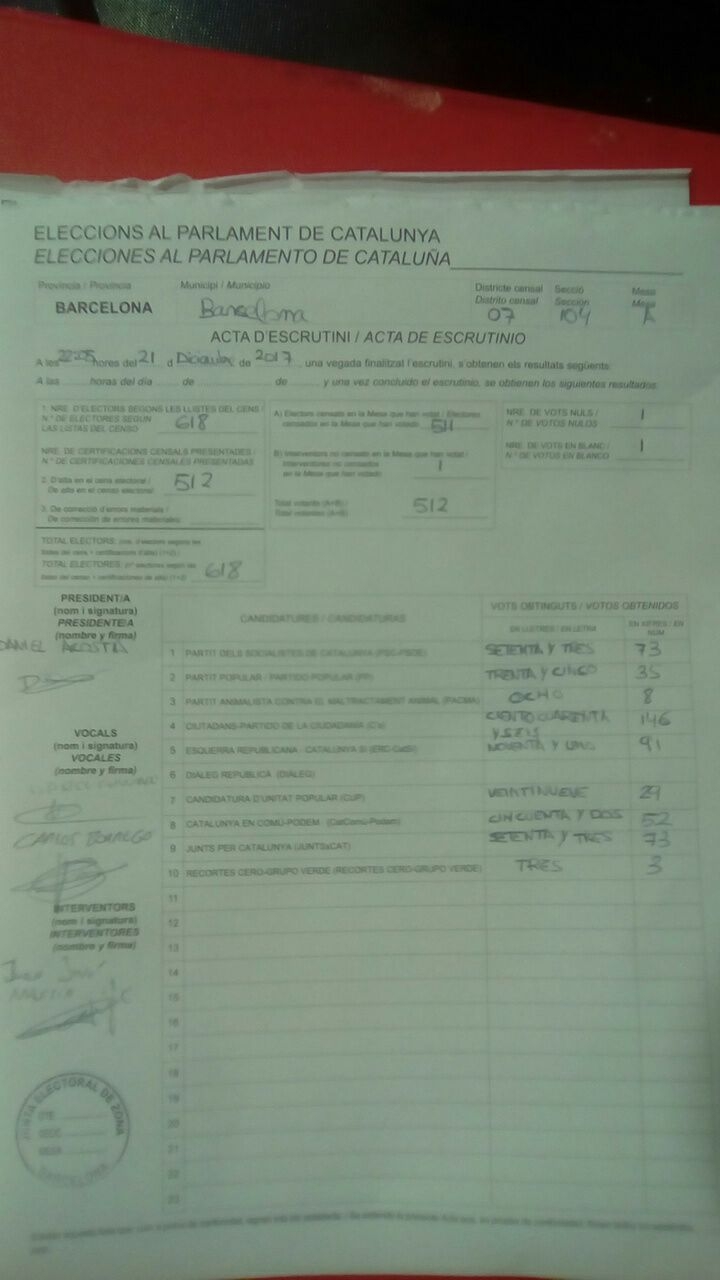 ELECCIONS AL PARLAMENT DE CATALUNYA
ELECCIONES AL PARLAMENTO DE CATALUÑA
Província / Provincia
BARCELONA
Municipi / Municipio
Barcelona
Districte censal Secció Mesa
Distrito censal Sección Mesa
07 104 A
ACTA D'ESCRUTINI / ACTA DE ESCRUTINIO
A les 22:05 hores del 21 d Diciembre de 2017, una vegada finalitzat l'escrutini, s'obtenen els resultats següents:
A las ........ horas del día ...... de ............ de ........ y una vez concluido el escrutinio, se obtienen los siguientes resultados:
1. NRE. D'ELECTORS SEGONS LES LLISTES DEL CENS /
N.º DE ELECTORES SEGÚN
LAS LISTAS DEL CENSO 618
NRE. DE CERTIFICACIONS CENSALS PRESENTADES /
N.º DE CERTIFICACIONES CENSALES PRESENTADAS
2. D'alta en el cens electoral /
De alta en el censo electoral 512
3. De correcció d'errors materials /
De corrección de errores materiales
TOTAL ELECTORS:
TOTAL ELECTORES: 618
A) Electors censats en la Mesa que han votat / Electores
censados en la Mesa que han votado 511
B) Interventors no censats en la Mesa que han votat /
Interventores no censados
en la Mesa que han votado 1
Total votants (A+B) /
Total votantes (A+B) 512
NRE. DE VOTS NULS /
N.º DE VOTOS NULOS 1
NRE. DE VOTS EN BLANC /
N.º DE VOTOS EN BLANCO 1
PRESIDENT/A
(nom i signatura)
PRESIDENTE/A
(nombre y firma)
DANIEL ACOSTA
VOCALS
(nom i signatura)
VOCALES
(nombre y firma)
CARLOS BORREGO
INTERVENTORS
(nom i signatura)
INTERVENTORES
(nombre y firma)
JUNTA ELECTORAL DE ZONA
BARCELONA
CANDIDATURES / CANDIDATURAS
VOTS OBTINGUTS / VOTOS OBTENIDOS
EN LLETRES / EN LETRA
EN XIFRES / EN NÚM
1 PARTIT DELS SOCIALISTES DE CATALUNYA (PSC-PSOE) SETENTA Y TRES 73
2 PARTIT POPULAR / PARTIDO POPULAR (PP) TRENTA Y CINCO 35
3 PARTIT ANIMALISTA CONTRA EL MALTRACTAMENT ANIMAL (PACMA) OCHO 8
4 CIUTADANS-PARTIDO DE LA CIUDADANÍA (C's) CIENTO CUARENTA Y SEIS 146
5 ESQUERRA REPUBLICANA - CATALUNYA SÍ (ERC-CatSí) NOVENTA Y UNO 91
6 DIÀLEG REPÚBLICA (DIÀLEG)
7 CANDIDATURA D'UNITAT POPULAR (CUP) VEINTINUEVE 29
8 CATALUNYA EN COMÚ-PODEM (CatComú-Podem) CINCUENTA Y DOS 52
9 JUNTS PER CATALUNYA (JUNTSxCAT) SETENTA Y TRES 73
10 RECORTES CERO-GRUPO VERDE (RECORTES CERO-GRUPO VERDE) TRES 3
11
12
13
14
15
16
17
18
19
20
21
22
23